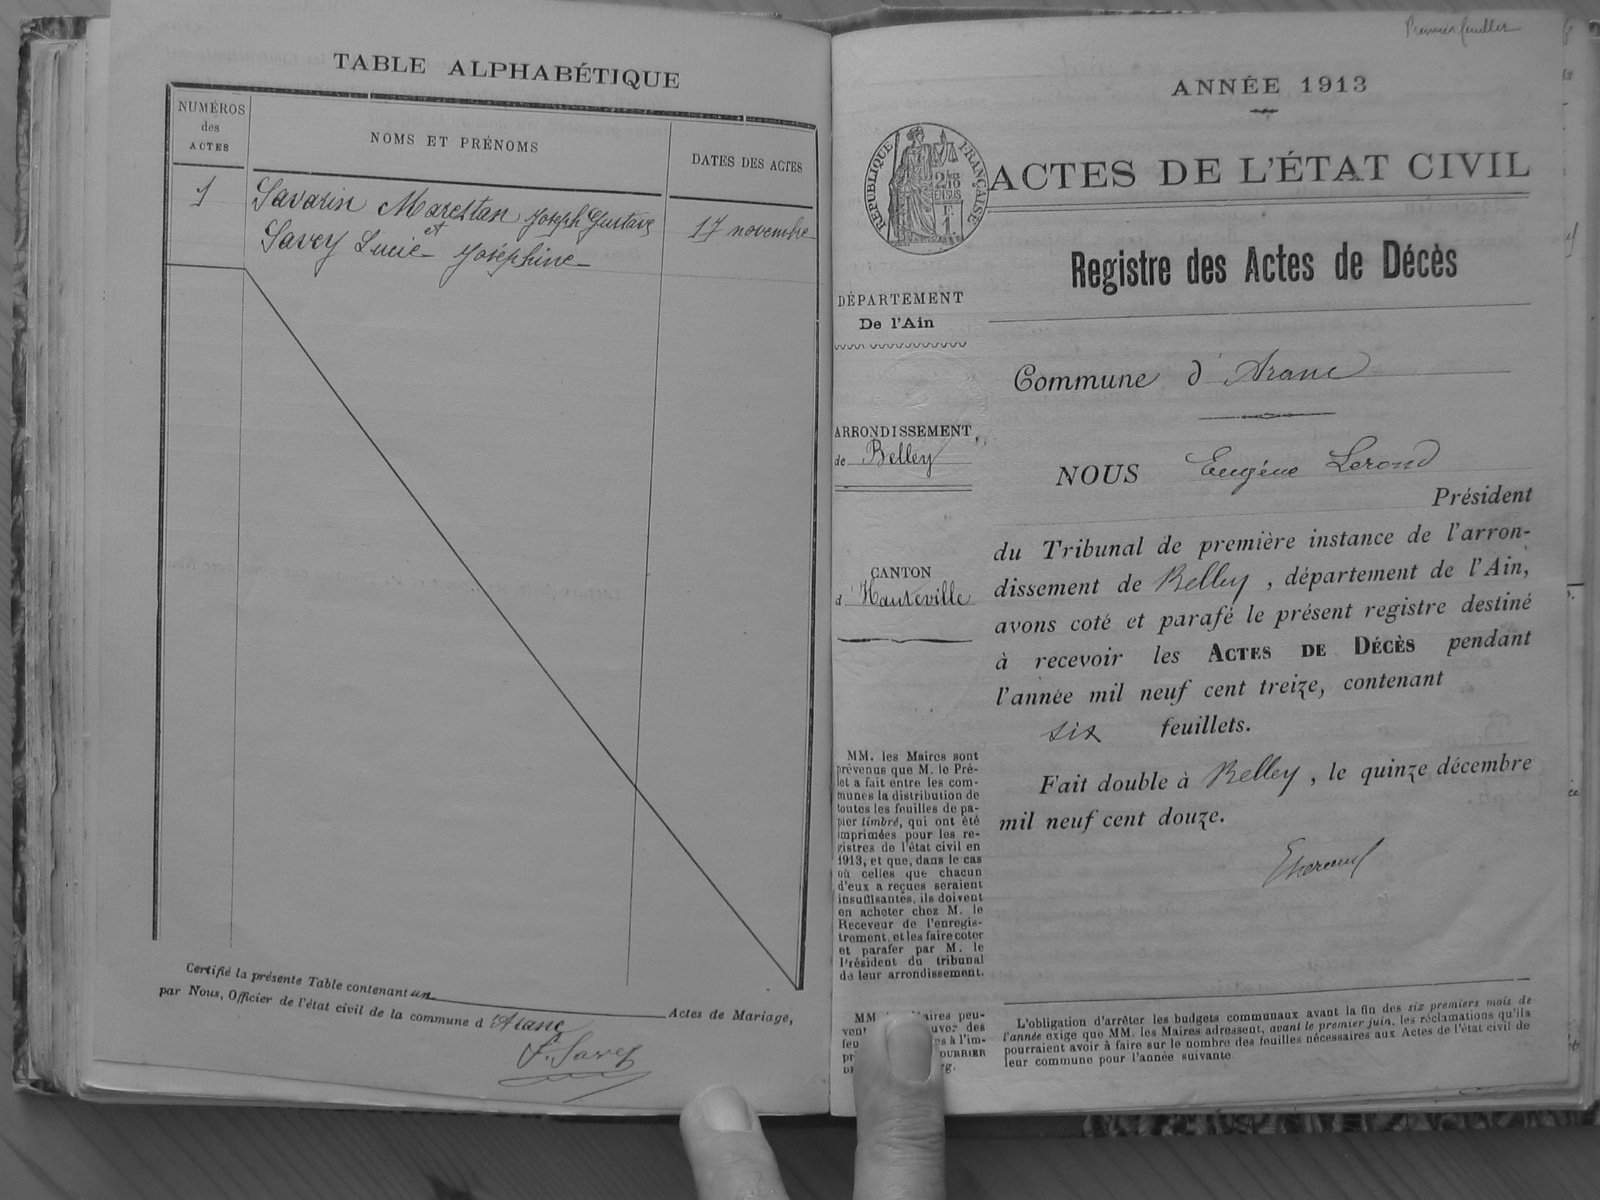 TABLE ALPHABÉTIQUE
NUMÉROS
des
ACTES
NOMS ET PRÉNOMS
DATES DES ACTES
1
Savarin Marestan Joseph Gustave
17 novembre
et
Savey Lucie Joséphine
Certifié la présente Table contenant un
Actes de Mariage,
par Nous, Officier de l'état civil de la commune d'Aranc
F. Savey
Premier feuillet
ANNÉE 1913
RÉPUBLIQUE FRANÇAISE
ACTES DE L'ÉTAT CIVIL
Registre des Actes de Décès
DÉPARTEMENT
De l'Ain
Commune d'Aranc
ARRONDISSEMENT
de Belley
NOUS Eugène Lerond
Président
du Tribunal de première instance de l'arron-
dissement de Belley, département de l'Ain,
avons coté et parafé le présent registre destiné
à recevoir les ACTES DE DÉCÈS pendant
l'année mil neuf cent treize, contenant
six feuillets.
Fait double à Belley, le quinze décembre
mil neuf cent douze.
CANTON
d'Hauteville
MM. les Maires sont
prévenus que M. le Pré-
fet a fait entre les com-
munes la distribution de
toutes les feuilles de pa-
pier timbré, qui ont été
imprimées pour les re-
gistres de l'état civil en
1913, et que, dans le cas
où celles que chacun
d'eux a reçues seraient
insuffisantes, ils doivent
en acheter chez M. le
Receveur de l'enregis-
trement, et les faire coter
et parafer par M. le
Président du tribunal
de leur arrondissement.
MM. Maires peu-
vent des
L'obligation d'arrêter les budgets communaux avant la fin des six premiers mois de
l'année exige que MM. les Maires adressent, avant le premier juin, les réclamations qu'ils
pourraient avoir à faire sur le nombre des feuilles nécessaires aux Actes de l'état civil de
leur commune pour l'année suivante